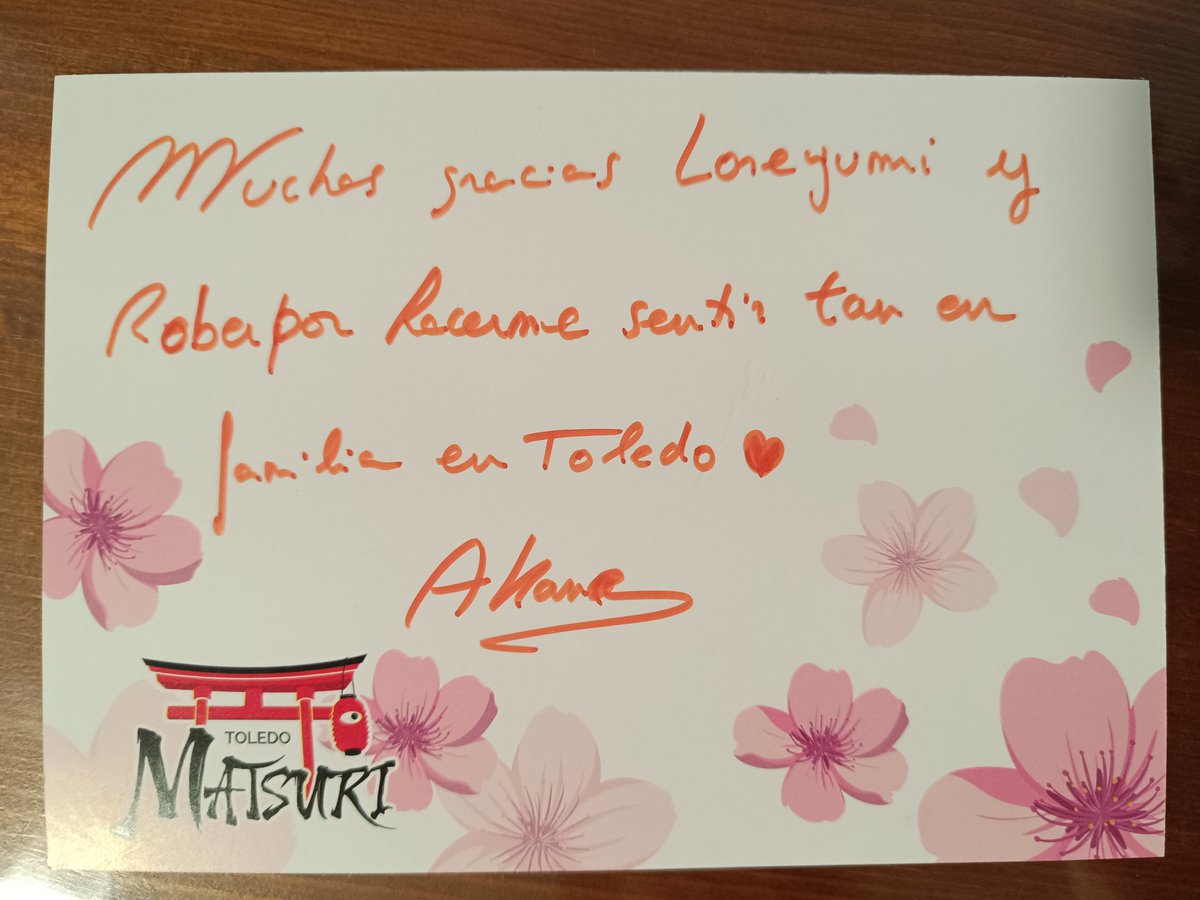 Muchas gracias Loreyumi y
Rober por hacerme sentir tan en
familia en Toledo ♥
Akane
TOLEDO
MATSURI